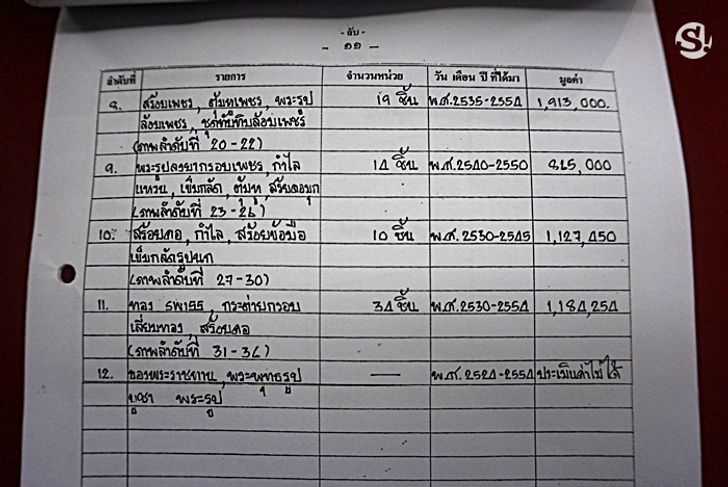 S.
- ลับ -
- ๑๑ -
ลำดับที่ รายการ จำนวนหน่วย วัน เดือน ปี ที่ได้มา มูลค่า
8. สร้อยเพชร, ตุ้มหูเพชร, พระรูป 19 ชิ้น พ.ศ.2535-2554 1,913,000.
ล้อมเพชร, ชุดทับทิมล้อมเพชร
(ภาพลำดับที่ 20-22)
9. พระรูปลงยากรอบเพชร, กำไล 14 ชิ้น พ.ศ.2540-2550 825,000
แหวน, เข็มกลัด, ตุ้มหู, สร้อยคอมุก
(ภาพลำดับที่ 23-26)
10. สร้อยคอ, กำไล, สร้อยข้อมือ 10 ชิ้น พ.ศ.2530-2545 1,127,450
เข็มกลัดรูปนก
(ภาพลำดับที่ 27-30)
11. ทอง SW155, กระต่ายกรอบ 34 ชิ้น พ.ศ.2530-2554 1,184,254
เลี่ยมทอง, สร้อยคอ
(ภาพลำดับที่ 31-36)
12. ของพระราชทาน, พระพุทธรูป — พ.ศ.2524-2554 ประเมินค่าไม่ได้
บูชา พระรูป